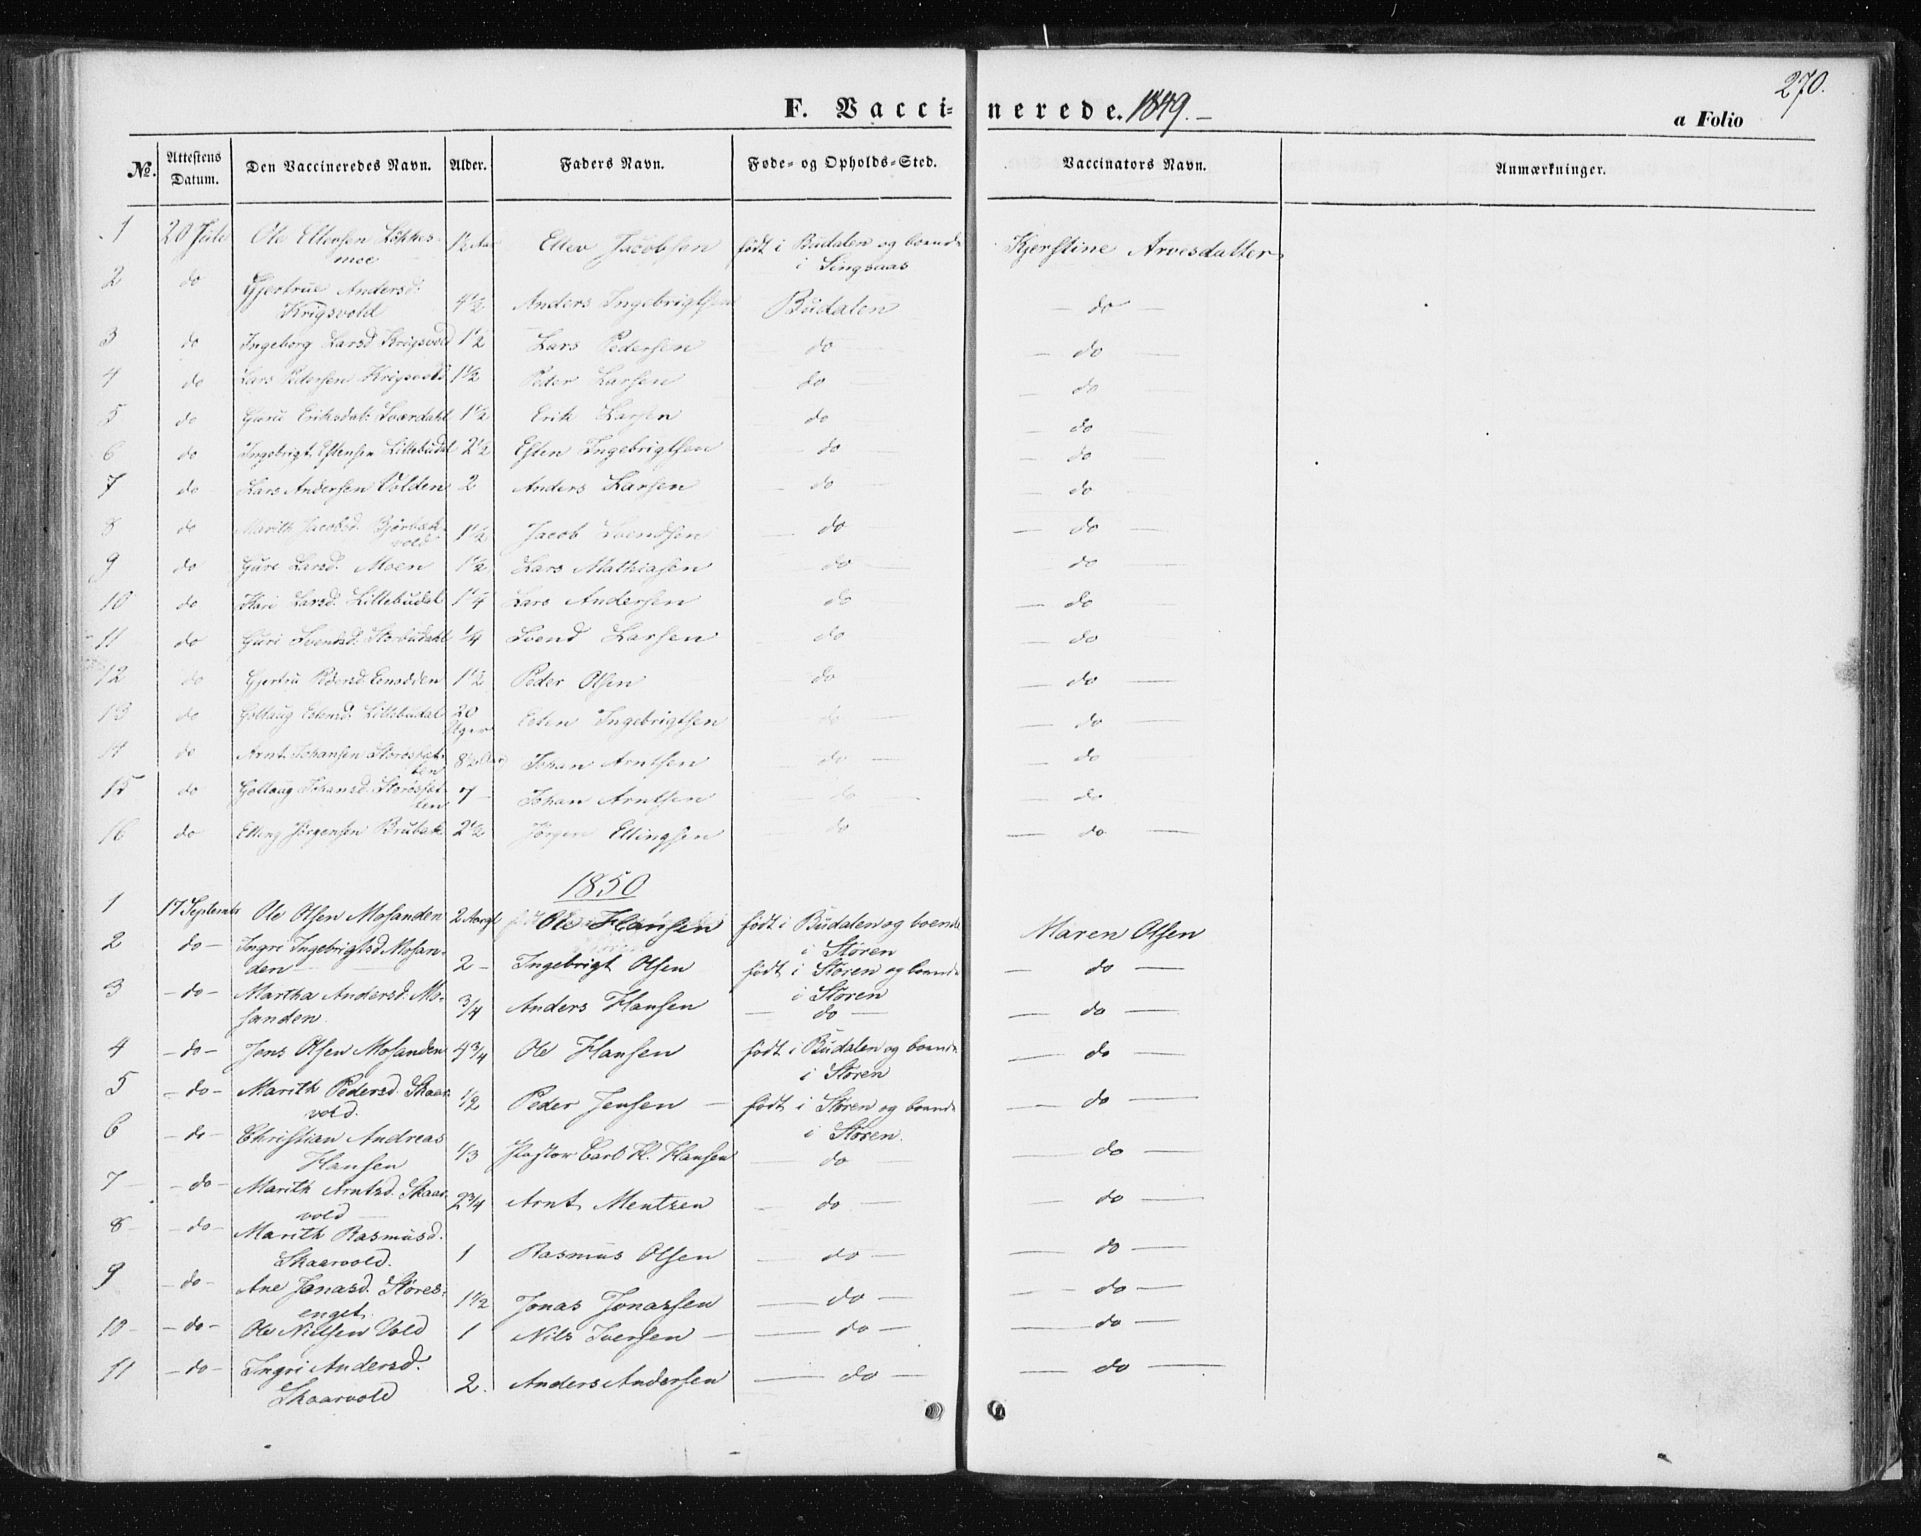 270.
F. Vaccinerede. 1849. —
a Folio
No. Attestens Datum. Den Vaccineredes Navn. Alder. Faders Navn. Føde- og Opholds-Sted. Vaccinators Navn. Anmærkninger.
1 20 Juli Ole Ellevsen Løkkes- 1½ Aar Ellev Jacobsen født i Budalen og boende Kjerstine Arvesdatter
moe i Singsaas
2 do Gjertrue Andersd.
Krigsvold 4½ Anders Ingebrigtsen Budalen — do —
3 do Ingeborg Larsd Krigsvold 1½ Lars Pedersen — do — — do —
4 do Lars Pedersen Krigsvold 1½ Peder Larsen — do — — do —
5 do Guru Eriksdat. Sværdahl 1½ Erik Larsen — do — — do —
6 do Ingebrigt Estensen Lillebudal 2½ Esten Ingebrigtsen — do — — do —
7 do Lars Andersen Volden 2 Anders Larsen — do — — do —
8 do Marith Jacobsd.
vold 1½ Jacob Svendsen — do — — do —
9 do Gure Larsd. Moen 1½ Lars Mathiasen — do — — do —
10 do Kari Larsd. Lillebudal 1¼ Lars Andersen — do — — do —
11 do Guri Svendsd. Storbudahl ¼ Svend Larsen — do — — do —
12 do Gjertru Pedersd. Enodden 1½ Peder Olsen — do — — do —
13 do Gollaug Estensd. Lillebudal 20 Esten Ingebrigtsen — do — — do —
Uger
14 do Arnt Johansen Storøsset- 8½ Aar Johan Arntsen — do — — do —
ten
15 do Gollaug Johansd. Storøsset- 7 — Johan Arntsen — do — — do —
ten
16 do Elling Jørgensen Brubak 2½ Jørgen Ellingsen — do — — do —
1850
1 17 Septembr Ole Olsen Mosanden 2 Aargl Ole Hansen født i Budalen og boende Maren Olsen
i Støren
2 — do — Ingri Ingebrigtsd. Mosan-
den 2 — Ingebrigt Olsen født i Støren og boende — do —
i Støren
3 — do — Martha Andersd. Mo-
sanden ¾ Anders Hansen — do — — do —
4 — do — Jens Olsen Mosanden 4¾ Ole Hansen født i Budalen og boende — do —
i Støren
5 — do — Marith Pedersd. Skaar-
vold. ½ Peder Jensen — født i Støren og boende — do —
i Støren.
6 — do — Christian Andreas
Hansen ⅓ Pastor Carl H. Hansen — do — — do —
7 — — do — Marith Arntsd. Skaar-
vold 2¾ Arnt Mentzen — do — — do —
8 — — do — Marith Rasmusd.
Skaarvold. 1 Rasmus Olsen — do — — do —
9 — do — Ane Jonasd. Støres-
enget 1½ Jonas Jonassen — do — — do —
10 — — do — Ole Nielsen Vold 1 Nils Iversen — — do — — do —
11 — do — Ingri Andersd.
Skaarvold 2. Anders Andersen — do — — do —